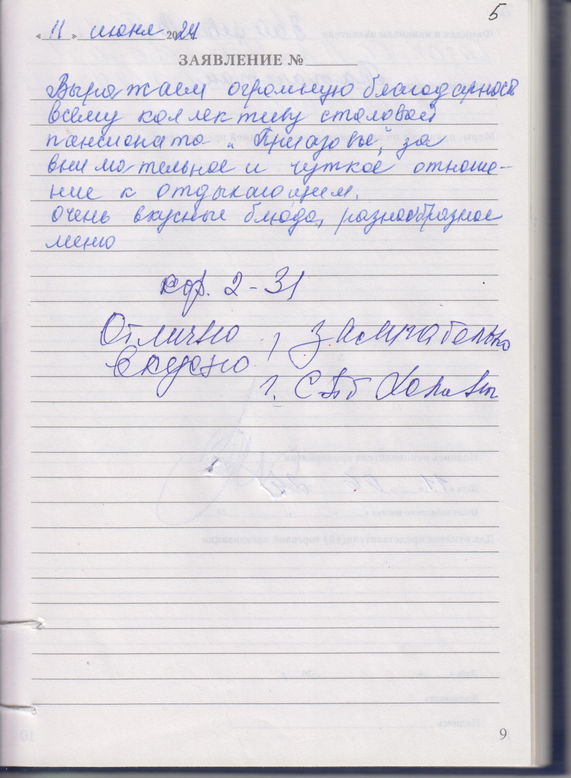 5
« 11 » июня 2024
ЗАЯВЛЕНИЕ № ______
Выражаем огромную благодарность
всему коллективу столовой
пансионата „Приазовье", за
внимательное и чуткое отноше-
ние к отдыхающим.
Очень вкусные блюда, разнообразное
меню
кор. 2-31
Отлично, замечательно
вкусно
г. СПб
9